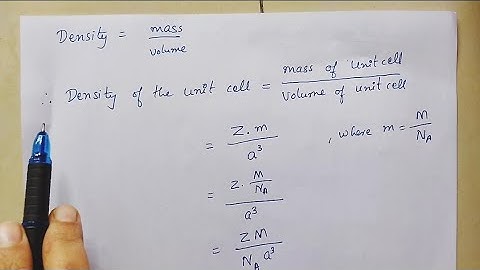 Density = mass / volume
∴ Density of the unit cell = mass of unit cell / volume of unit cell
= Z . m / a³ , where m = M / N_A
= Z . M/N_A / a³
= Z M / N_A a³